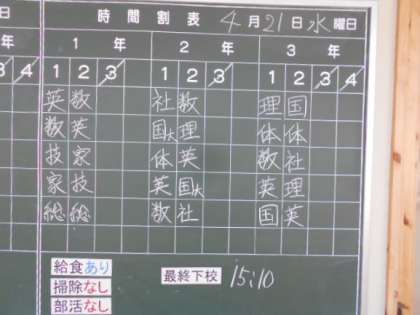 時間割表 4月21日水曜日
年 1年 2年 3年
3 4 1 2 3 1 2 3 1 2 3 4
英 数 社 数 理 国
数 英 国大 理 体 体
技 家 体 英 数 社
家 技 英 国大 英 理
総 総 数 社 国 英
給食あり
掃除なし 最終下校 15:10
部活なし